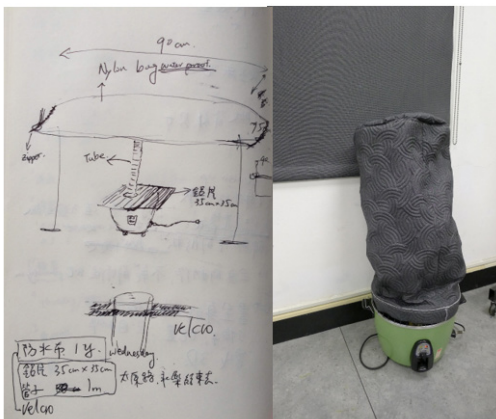 90cm.
Nylon bag water proof
75
zipper
Tube
鋁片
35cm×35cm
velcro
wednesday
防水布 1多
鋁片 35cm×35cm
管子 1m
velcro